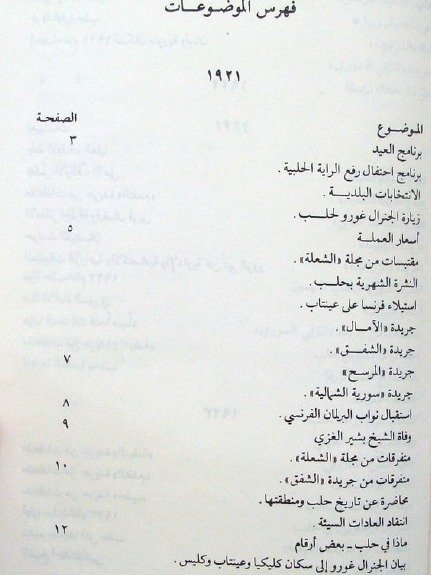 فهرس الموضوعات
١٩٢١
الموضوع الصفحة
برنامج العيد ٣
برنامج احتفال رفع الراية الحلبية .
الانتخابات البلدية .
زيارة الجنرال غورو لحلب .
أسعار العملة ٥
مقتبسات من مجلة «الشعلة» .
النشرة الشهرية بحلب .
استيلاء فرنسا على عينتاب .
جريدة «الأمال» .
جريدة «الشفق» .
جريدة «المرسح» ٧
جريدة «سورية الشمالية» .
استقبال نواب البرلمان الفرنسي . ٨
وفاة الشيخ بشير الغزي ٩
متفرقات من مجلة «الشعلة» .
متفرقات من جريدة «الشفق» . ١٠
محاضرة عن تاريخ حلب ومنطقتها .
انتقاد العادات السيئة .
ماذا في حلب ــ بعض أرقام ١٢
بيان الجنرال غورو إلى سكان كليكيا وعينتاب وكليس .